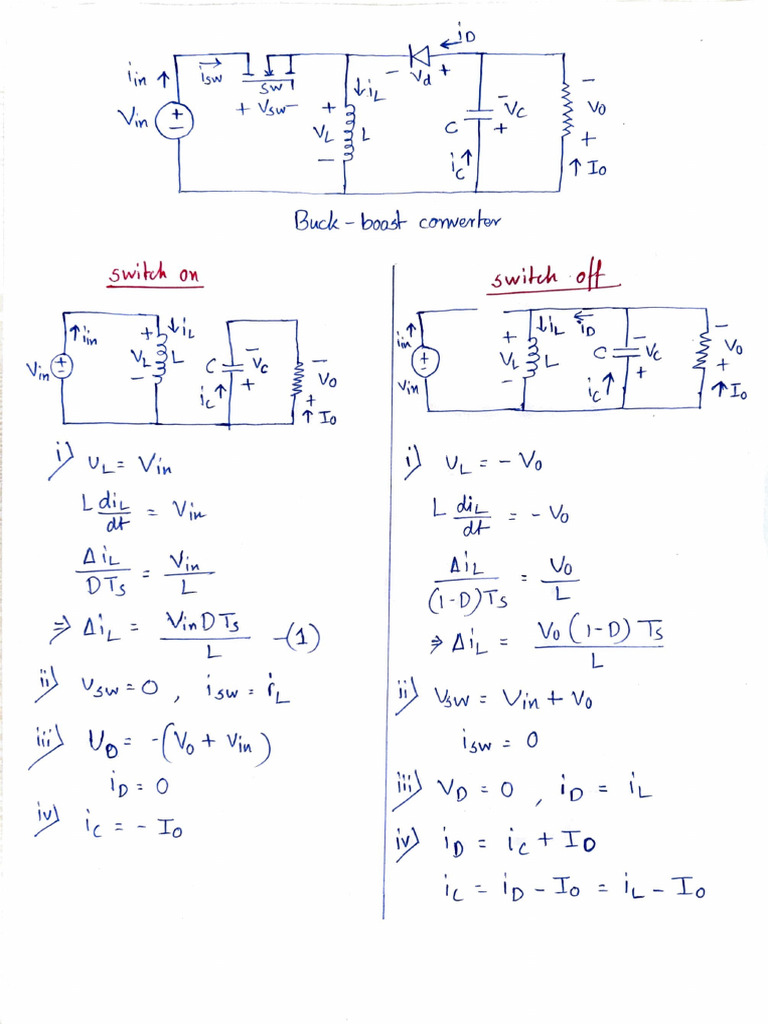 iin ↑ isw → SW + Vsw - iL ↓ - Vd + iD ←
Vin + - VL + - L C - Vc + ic ↑ - Vo + ↑ Io
Buck-boost converter
switch on
↑ iin + ↓ iL - -
Vin + - VL L C Vc Vo
- ic ↑ + + ↑ Io
i) υL = Vin
L diL/dt = Vin
ΔiL/DTs = Vin/L
⇒ ΔiL = VinDTs/L -(1)
ii) υsw = 0 , isw = iL
iii) υD = -(Vo + Vin)
iD = 0
iv) ic = - Io
switch off
iin ↑ + ↓ iL iD ← - -
Vin + - VL L C Vc Vo
- ic ↑ + + ↑ Io
i) υL = - Vo
L diL/dt = - Vo
ΔiL/(1-D)Ts = Vo/L
⇒ ΔiL = Vo(1-D)Ts/L
ii) Vsw = Vin + Vo
isw = 0
iii) VD = 0 , iD = iL
iv) iD = ic + Io
ic = iD - Io = iL - Io